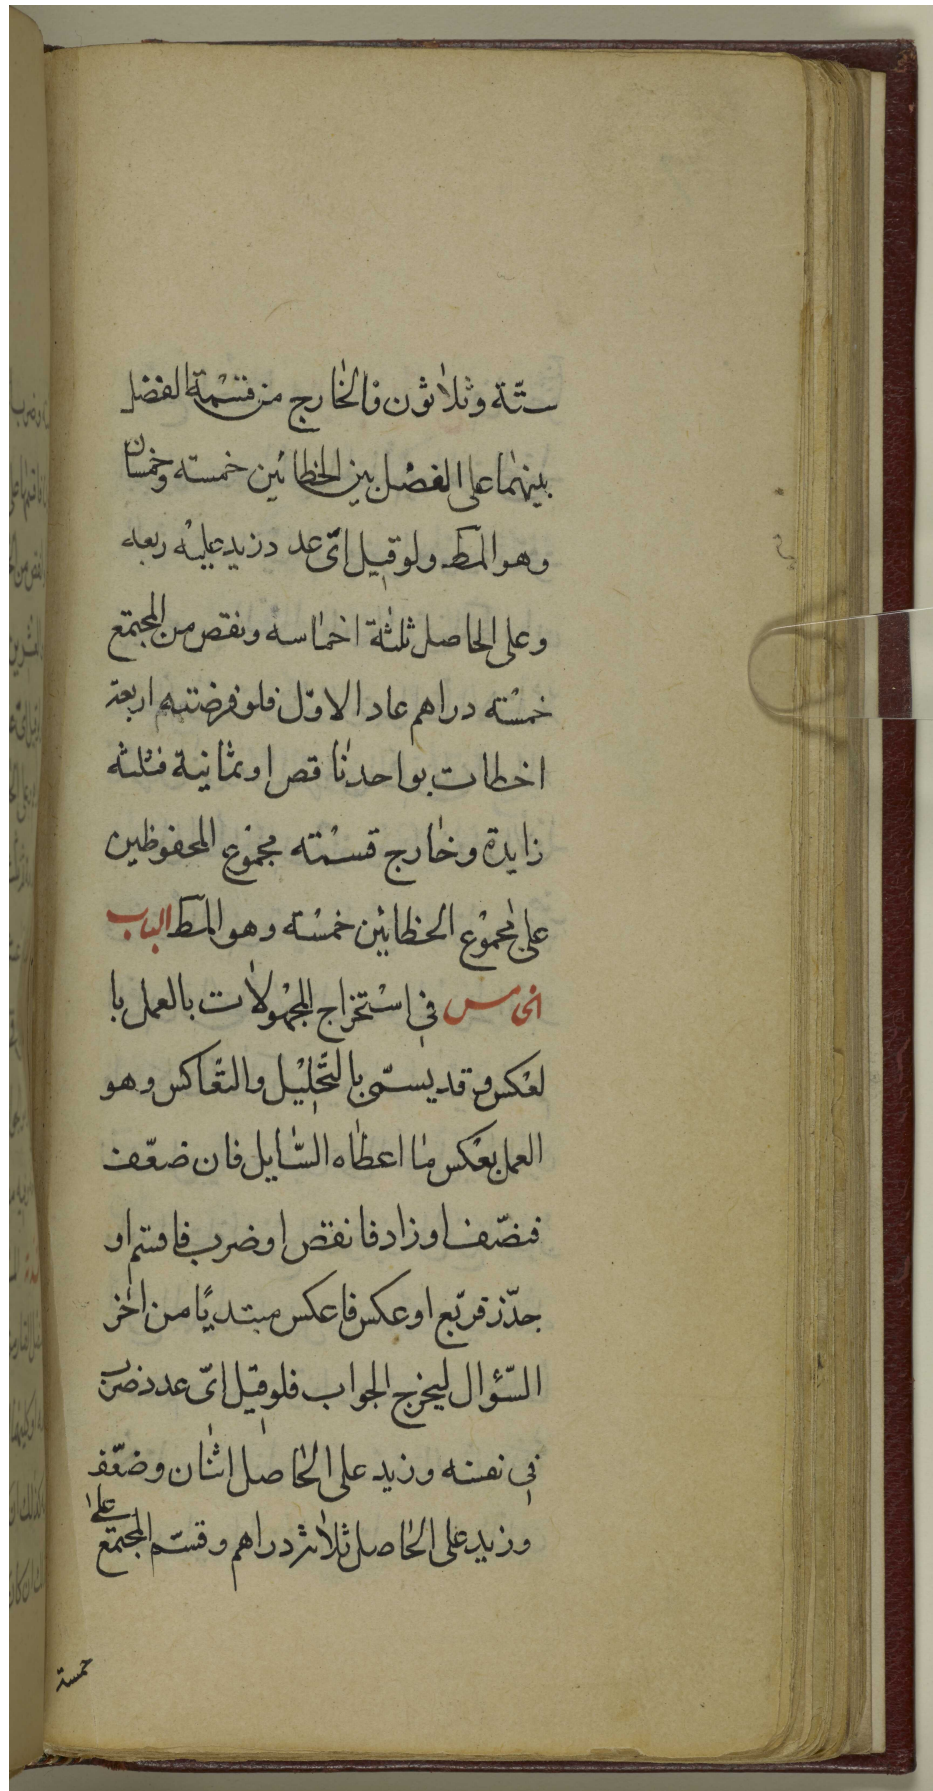 ستّة وثلاثون فالخارج من قسْمة الفضل
بينهما على الفضْل بين الخطائين خمسته وخمسان
وهو المط ولو قيل اىّ عدد زيد عليْه ربعه
وعلى الحاصل ثلثة اخماسه ونقص من المجتمع
خمسْته دراهم عاد الاوّل فلو فرضته اربعة
اخطات بواحد ناقص او ثمانية فثلثه
زايدة وخارج قسمْته مجموع المحفوظين
على مجموْع الخطايْن خمسْته وهو المط الباب
الخامس فى اسْتخراج المجهوْلات بالعمل با
لعكْس وقد يسمّى بالتّحليْل والتّعاكس وهو
العمل بعكْس ما اعطاه السّايل فان ضعّف
فنصّف او زاد فانقص او ضرب فاقسم او
جذّر فربّع او عكس فاعكس مبتديًا من اخر
السّؤال ليخرج الجواب فلو قيل اىّ عدد ضرب
فى نفسه وزيد على الحاصل اثنان وضعّف
وزيد على الحاصل ثلاثة دراهم وقسّم المجتمع على
خمسة